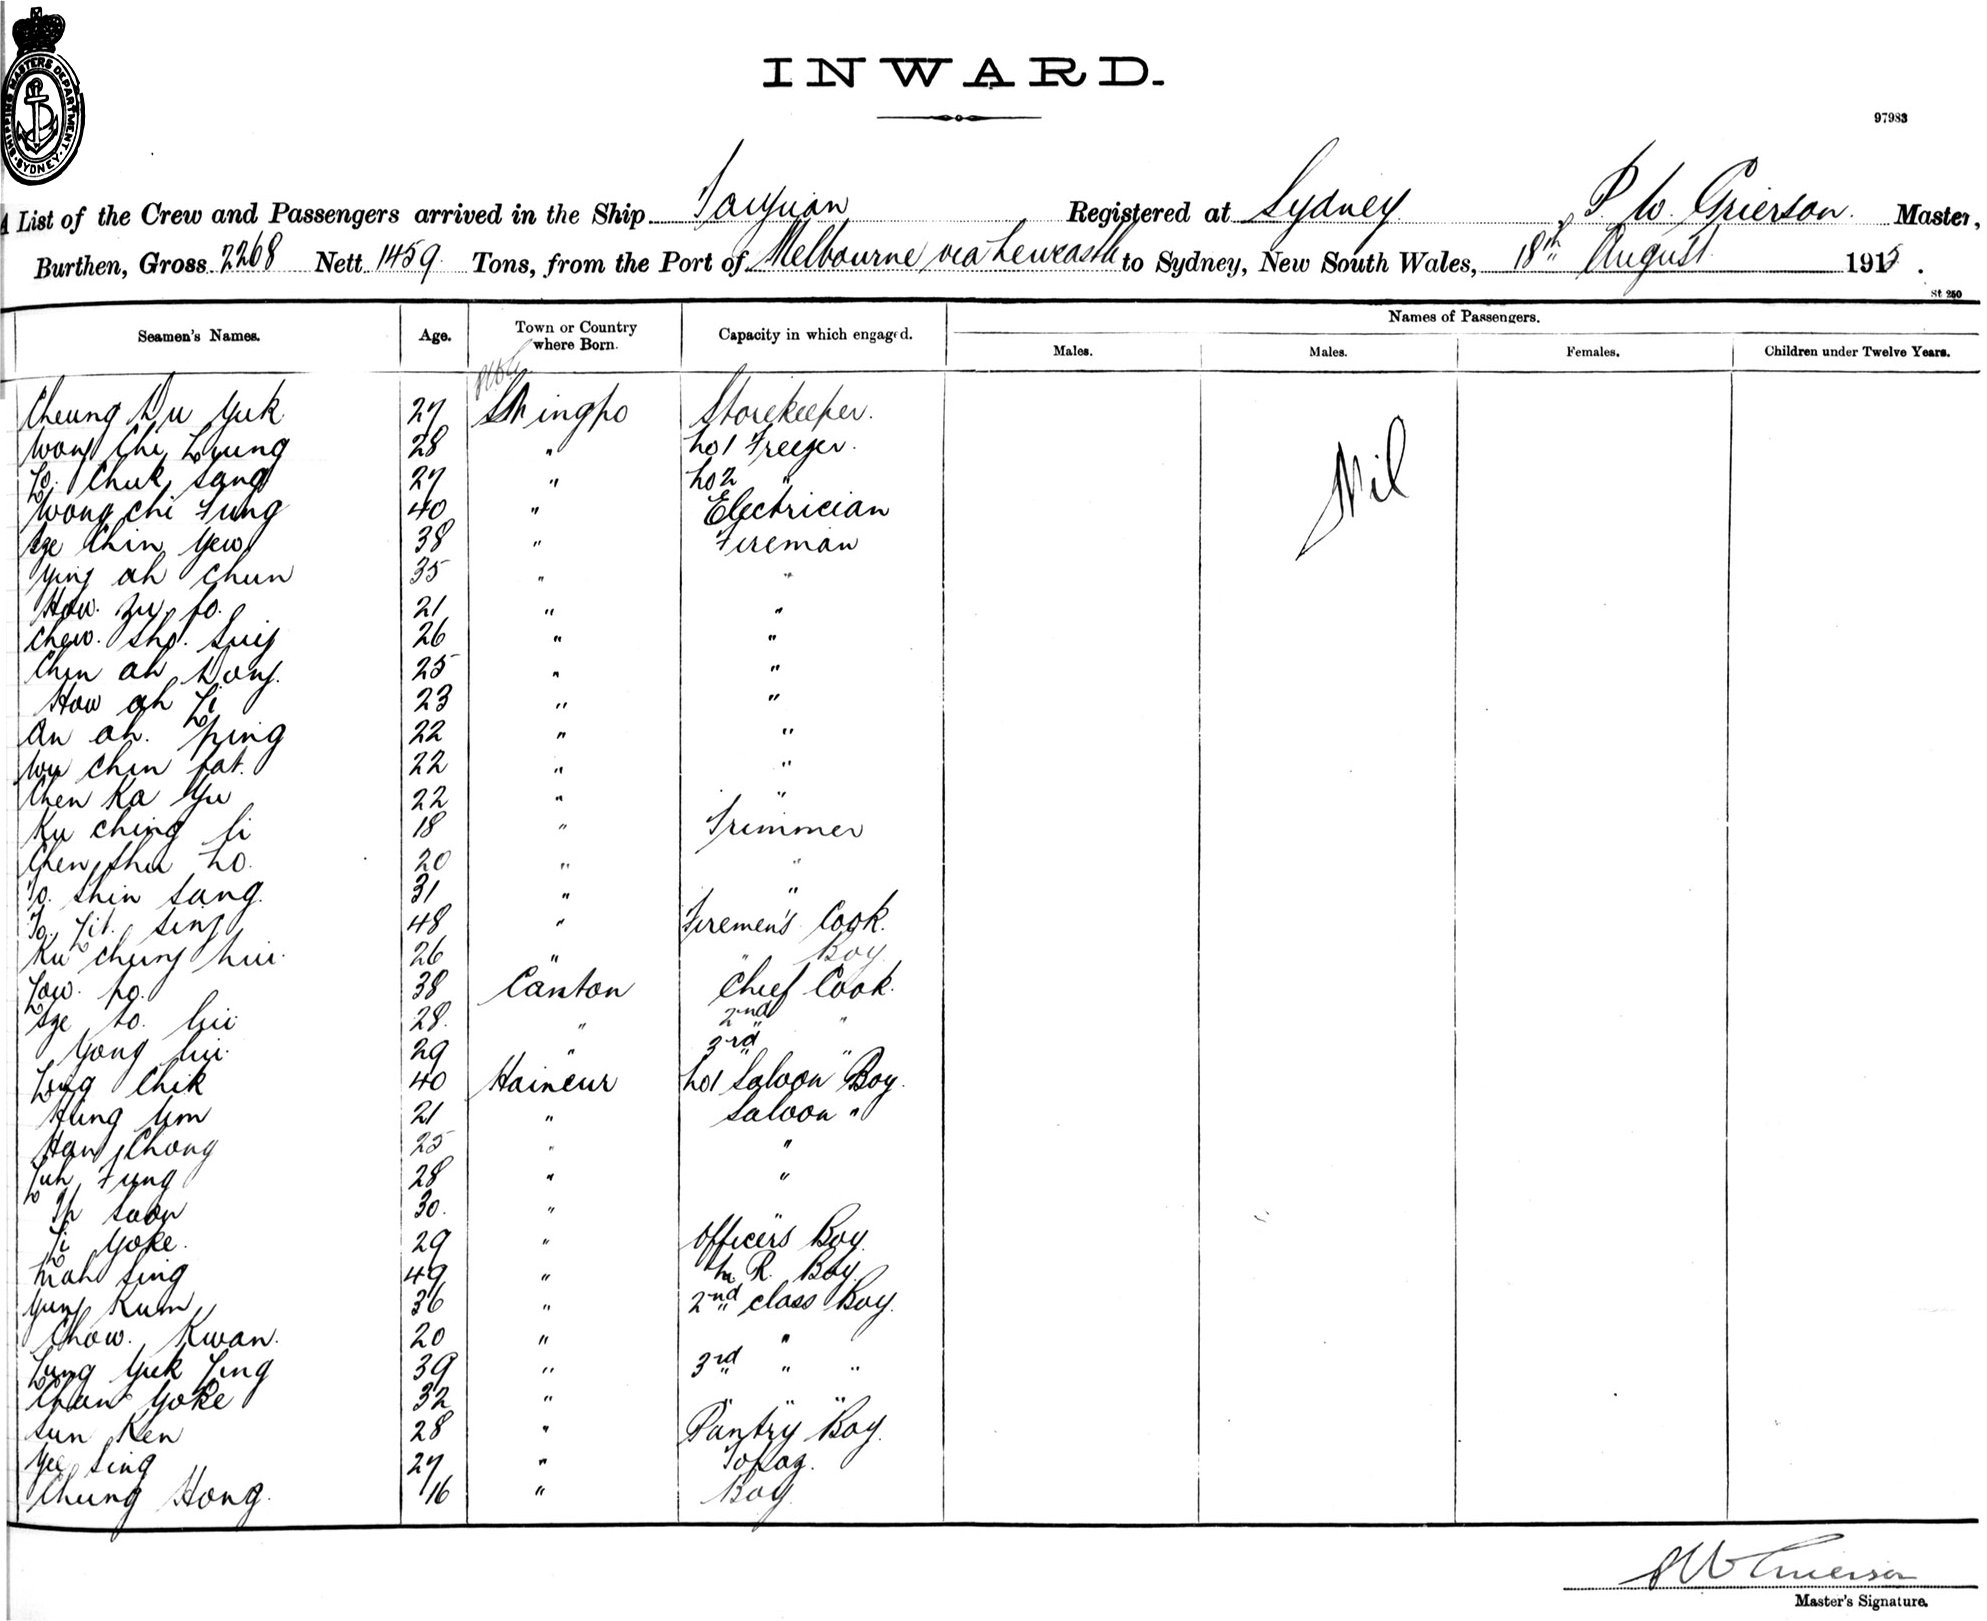 SHIPPING MASTERS DEPARTMENT SYDNEY
INWARD.
97983
A List of the Crew and Passengers arrived in the Ship Taiyuan Registered at Sydney, P. W. Grierson. Master,
Burthen, Gross 2268 Nett 1459 Tons, from the Port of Melbourne via Newcastle to Sydney, New South Wales, 18th August 1915.
St 250
Seamen's Names. Age. Town or Country where Born. Capacity in which engaged. Names of Passengers.
Males. Males. Females. Children under Twelve Years.
Nil
Cheung Du Yuk 27 Ningpo Storekeeper.
Wong Chi Leung 28 " No 1 Greeser.
Lo. Chuk Sang 27 " No 2 "
Wong Chi Fung 40 " Electrician
Sze Chin Yew 38 " Fireman
Ying ah Chun 35 " "
How. Zu fo. 21 " "
Chew. Sho. Suig 26 " "
Chin ah Dong. 25 " "
How ah Li 23 " "
An ah. Ping 22 " "
Wu Chin fat. 22 " "
Chen Ka Yu 22 " "
Ku Ching li 18 " Trimmer
Chen Shu Ho. 20 " "
Yo. Shin Sang. 31 " "
Yo. Yit. Sing 48 " Firemen's Cook.
Ku Chung hui. 26 " " Boy
Low. po. 38 Canton Chief Cook.
Sze to. lui 28. " 2nd "
Yong lui. 29 " 3rd "
Long Chik 40 Haincur No 1 Saloon Boy.
Hung Um 21 " Saloon "
Han Chong 25 " "
Luh Fung 28 " "
Ih Soon 30. " "
Li Yoke. 29 " Officers Boy.
Mah Sing 49 " M. R. Boy.
Yung Kum 36 " 2nd class Boy.
Chow. Kwan. 20 " "
Lung Yuk Ling 39 " 3rd " "
Chan Yoke 32 " " " "
Sun Ken 28 " Pantry Boy.
Yee Sing 27 " Topaz.
Chung Hong. 16 " Boy
Master's Signature.